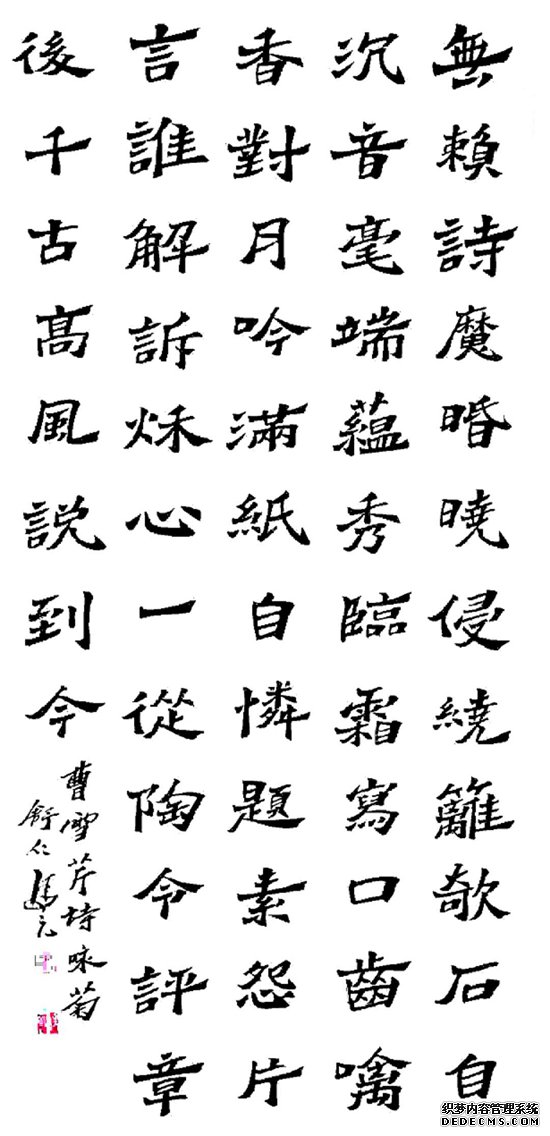 無賴詩魔昏曉侵繞籬欹石自
沉音毫端蘊秀臨霜寫口齒噙
香對月吟滿紙自憐題素怨片
言誰解訴秌心一從陶令評章
後千古髙風説到今
曹雪芹詩咏菊
舒仁
织梦内容管理系统
DEDECMS.COM